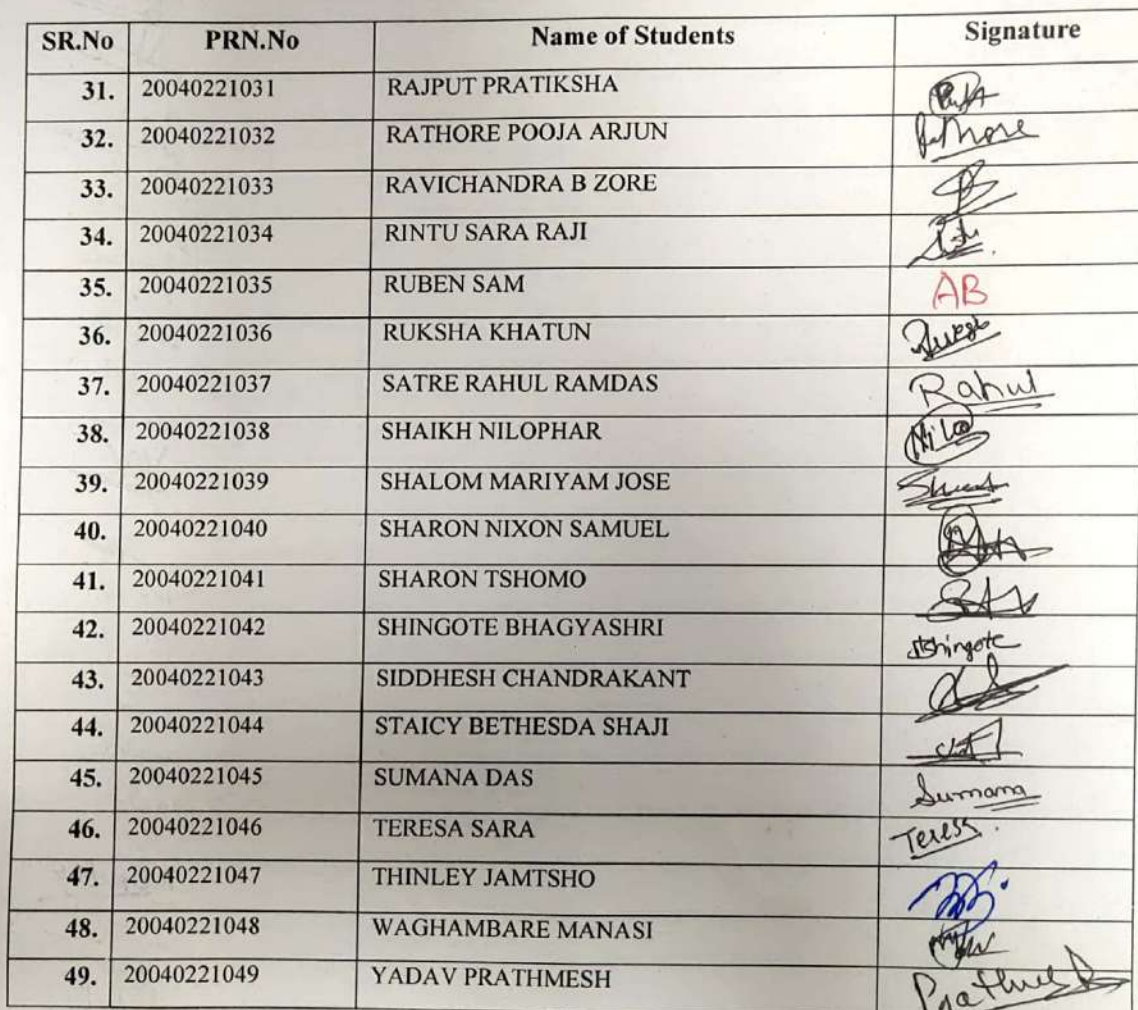 SR.No PRN.No Name of Students Signature
31. 20040221031 RAJPUT PRATIKSHA
32. 20040221032 RATHORE POOJA ARJUN Rathore
33. 20040221033 RAVICHANDRA B ZORE
34. 20040221034 RINTU SARA RAJI
35. 20040221035 RUBEN SAM AB
36. 20040221036 RUKSHA KHATUN
37. 20040221037 SATRE RAHUL RAMDAS Rahul
38. 20040221038 SHAIKH NILOPHAR Nilo
39. 20040221039 SHALOM MARIYAM JOSE
40. 20040221040 SHARON NIXON SAMUEL
41. 20040221041 SHARON TSHOMO
42. 20040221042 SHINGOTE BHAGYASHRI
43. 20040221043 SIDDHESH CHANDRAKANT
44. 20040221044 STAICY BETHESDA SHAJI
45. 20040221045 SUMANA DAS Sumana
46. 20040221046 TERESA SARA
47. 20040221047 THINLEY JAMTSHO
48. 20040221048 WAGHAMBARE MANASI
49. 20040221049 YADAV PRATHMESH